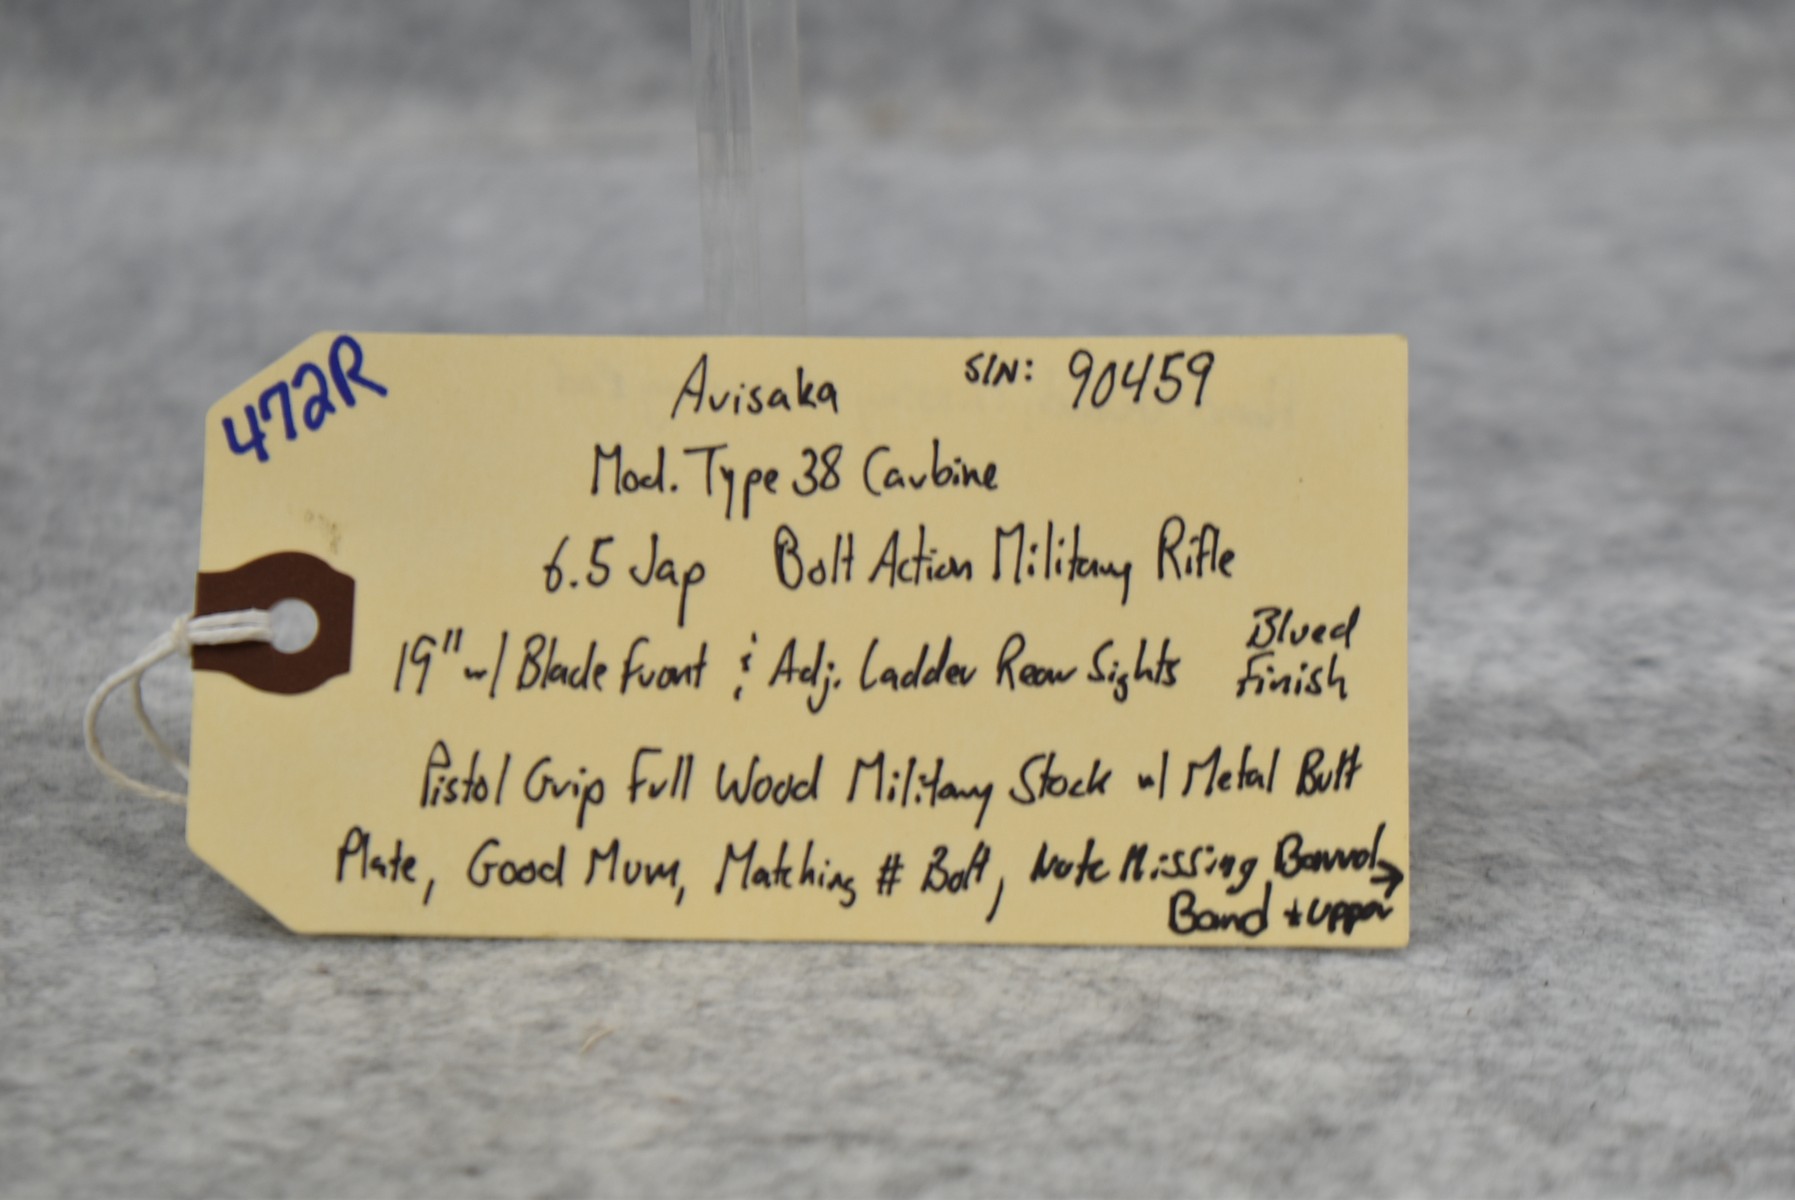 472R
Arisaka S/N: 90459
Mod. Type 38 Carbine
6.5 Jap Bolt Action Military Rifle
19" w/ Blade Front & Adj. Ladder Rear Sights Blued Finish
Pistol Grip Full Wood Military Stock w/ Metal Butt
Plate, Good Mum, Matching # Bolt, Note Missing Barrel →
Band + upper